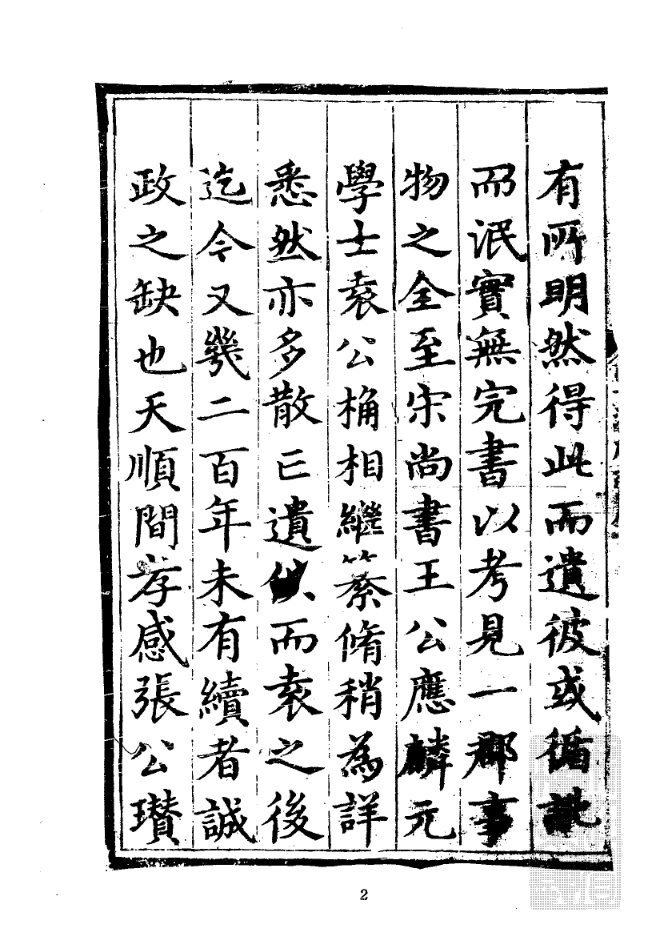 有所明然得此而遺彼或循訛
而泯實無完書以考見一郡事
物之全至宋尚書王公應麟元
學士袁公桷相繼纂脩稍為詳
悉然亦多散亡遺佚而袁之後
迄今又幾二百年未有續者誠
政之缺也天順間孝感張公瓚
2